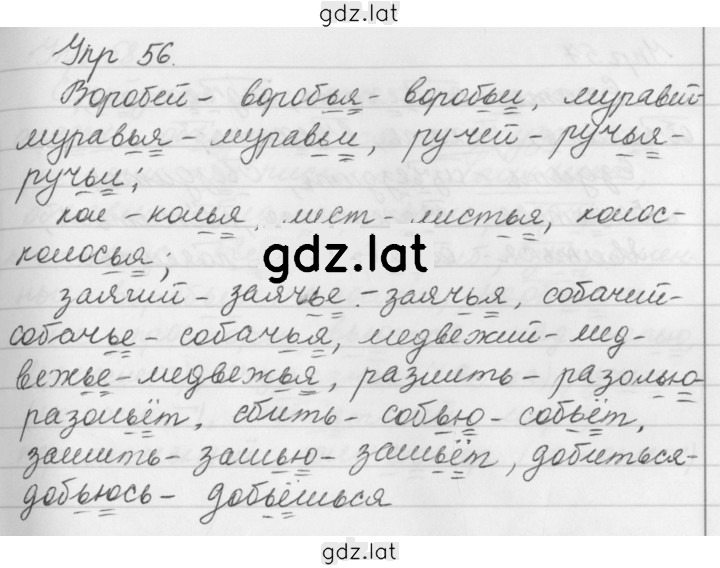 gdz.lat
Упр 56.
Воробей - воробья - воробьи, муравей-
муравья - муравьи, ручей - ручья-
ручьи;
кол - колья, лист - листья, колос-
колосья;
gdz.lat
заячий - заячье - заячья, собачий-
собачье - собачья, медвежий - мед-
вежье - медвежья, разлить - разолью-
разольёт, сбить - собью - собьёт,
зашить - зашью - зашьёт, добиться-
добьюсь - добьёшься
gdz.lat